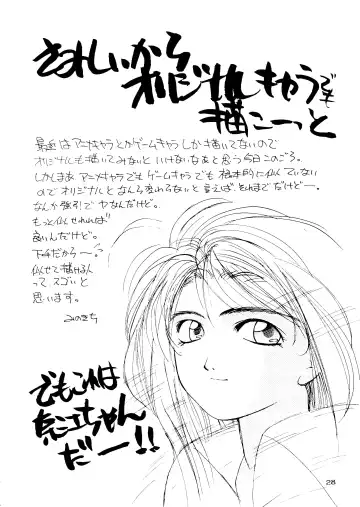 さみしいから
オリジナルキャラでも
描こーっと
最近はアニメキャラとかゲームキャラしか描いてないので
オリジナルも描いてみないといけないなぁと思う今日このごろ。
しかしまあアニメキャラでもゲームキャラでも根本的に似ていない
のでオリジナルとなんら変わらないと言えばそれまでだけどー。
なんか強引でヤなんだけど。
もっと似せれれば
良いんだけど。
下手だからー。
似せて描ける人
ってスゴいと
思います。
みのきち
でもこれは
ちゃん
だー!!
28